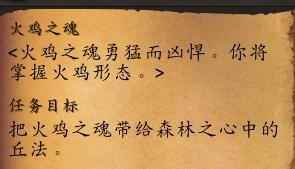 火鸡之魂
<火鸡之魂勇猛而凶悍。你将
掌握火鸡形态。>
任务目标
把火鸡之魂带给森林之心中的
丘法。